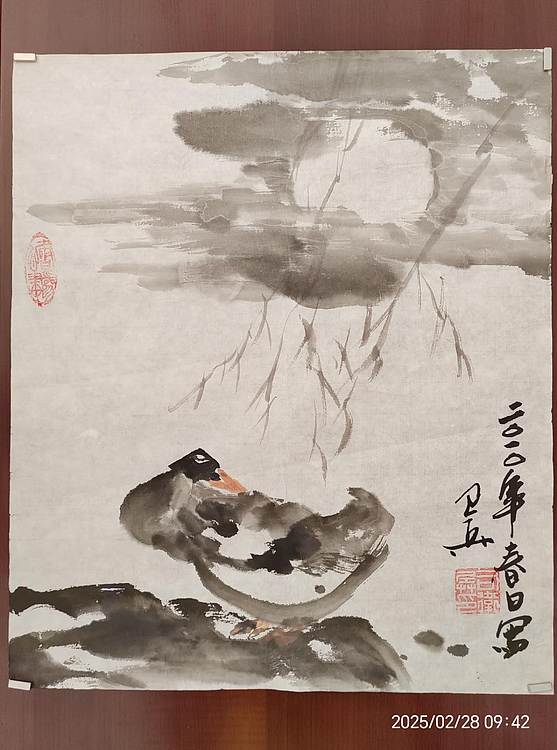 二〇一〇年春日写
卫兵
2025/02/28 09:42